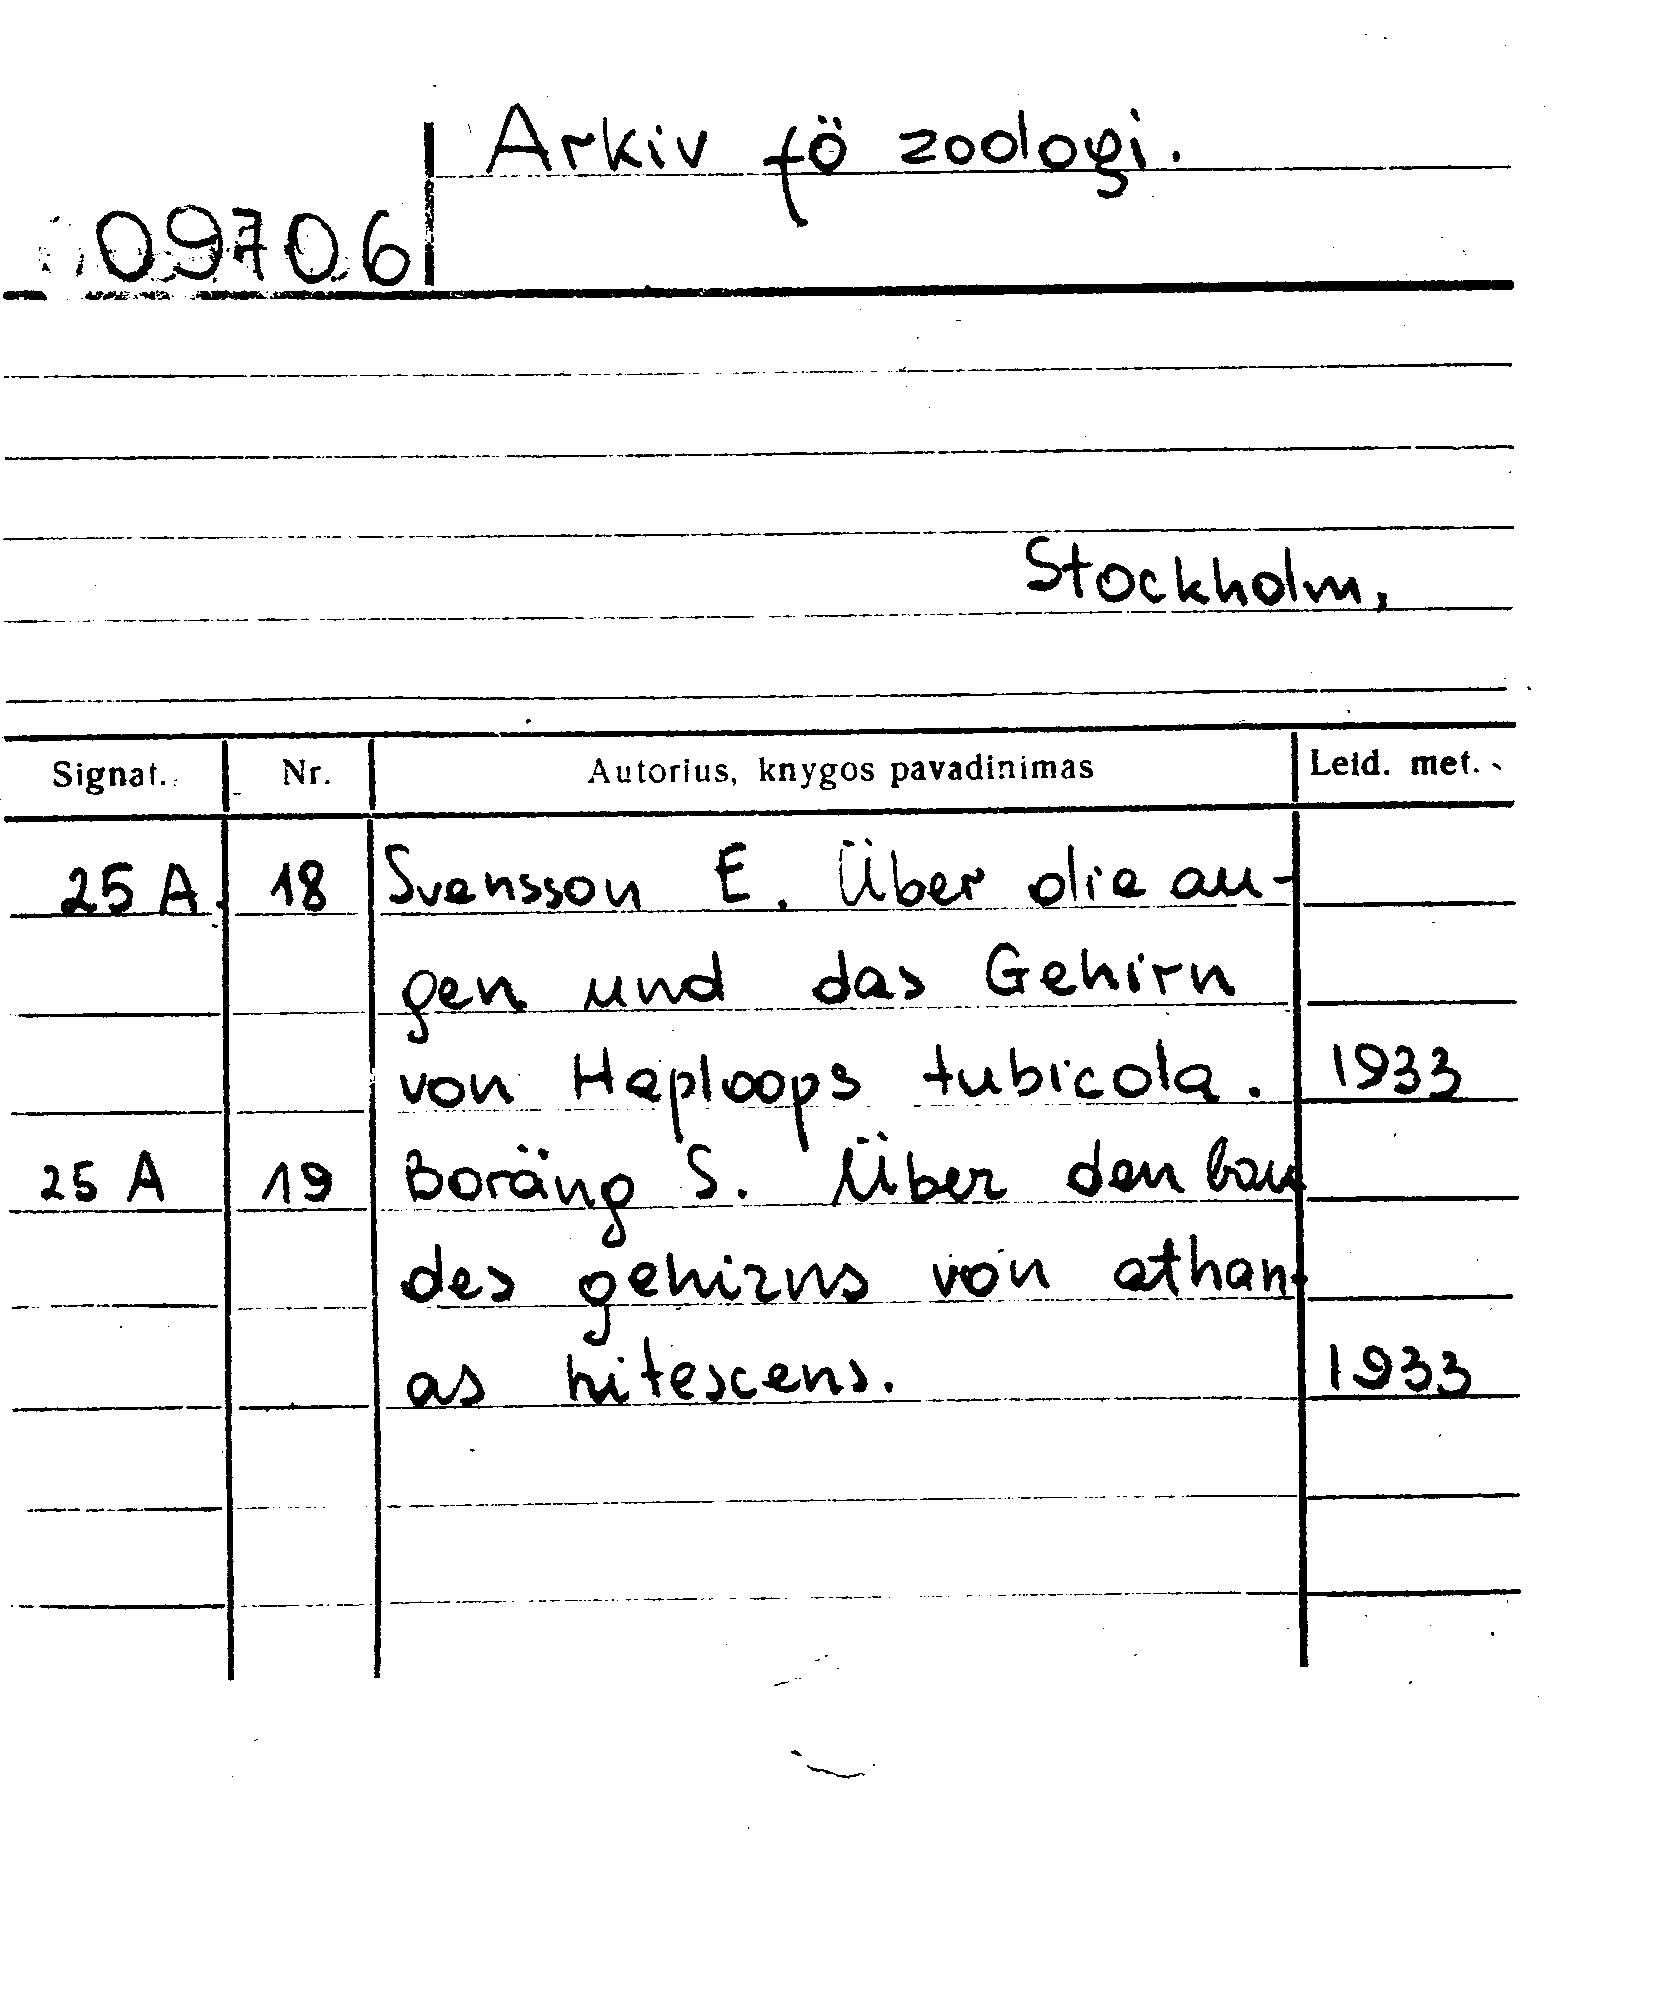 Arkiv fö zoologi.
09706
Stockholm,
Signat. Nr. Autorius, knygos pavadinimas Leid. met.
25 A. 18 Svensson E. Über die au-
gen und das Gehirn
von Haploops tubicola. 1933
25 A 19 Boräng S. Über den bau
des gehirns von athan-
as nitescens. 1933